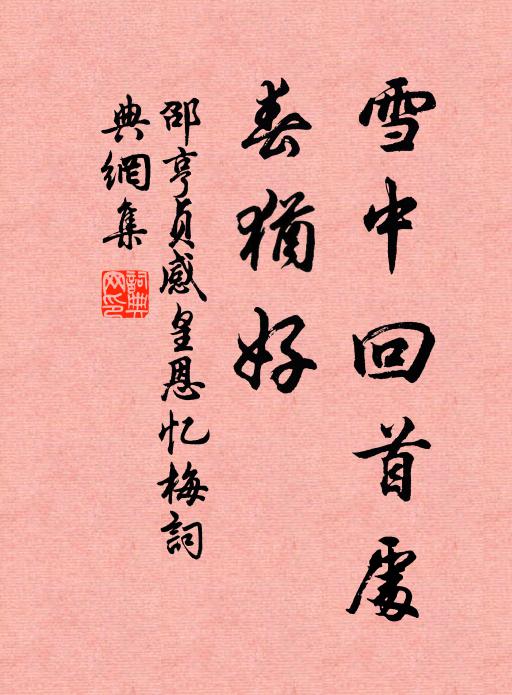 雪中回首處
春猶好
邵亨貞感皇恩忆梅詞
典網集
詞典网印